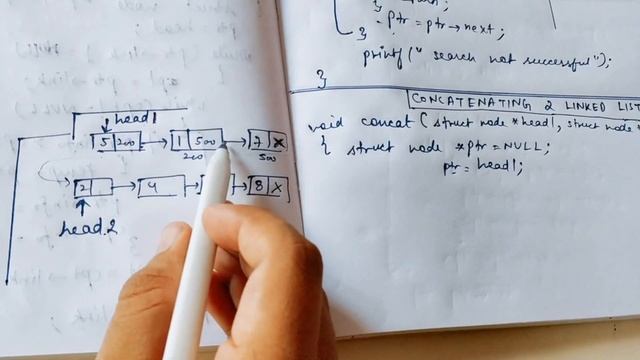 ptr = ptr → next ;
}
printf(" search not successful");
}
CONCATENATING 2 LINKED LIST
void concat ( struct node * head1, struct node
{ struct node *ptr = NULL;
ptr = head1;
head1
5 200 → 1 500 → 7 X
200 500
2 → 4 → → 8 X
head2